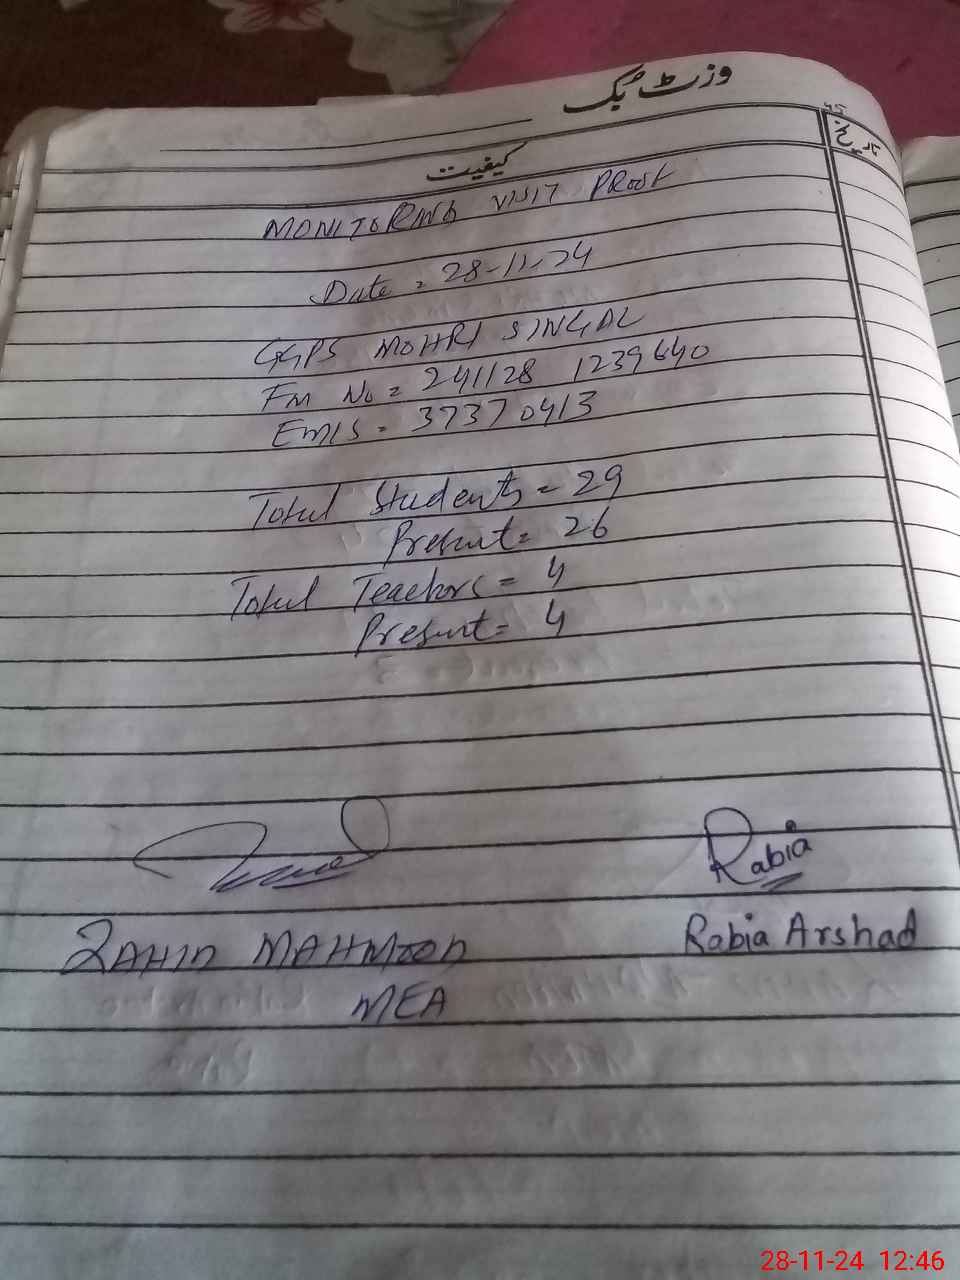 وزٹ بُک
تاریخ
کیفیت
MONITORING VISIT PROOF
Date = 28-11-24
GGPS MOHRI SINGAL
Fm No = 241128 1239640
EMIS = 37370413
Total Students = 29
Present = 26
Total Teachers = 4
Present = 4
Rabia
ZAHID MAHMOOD
Rabia Arshad
MEA
28-11-24 12:46